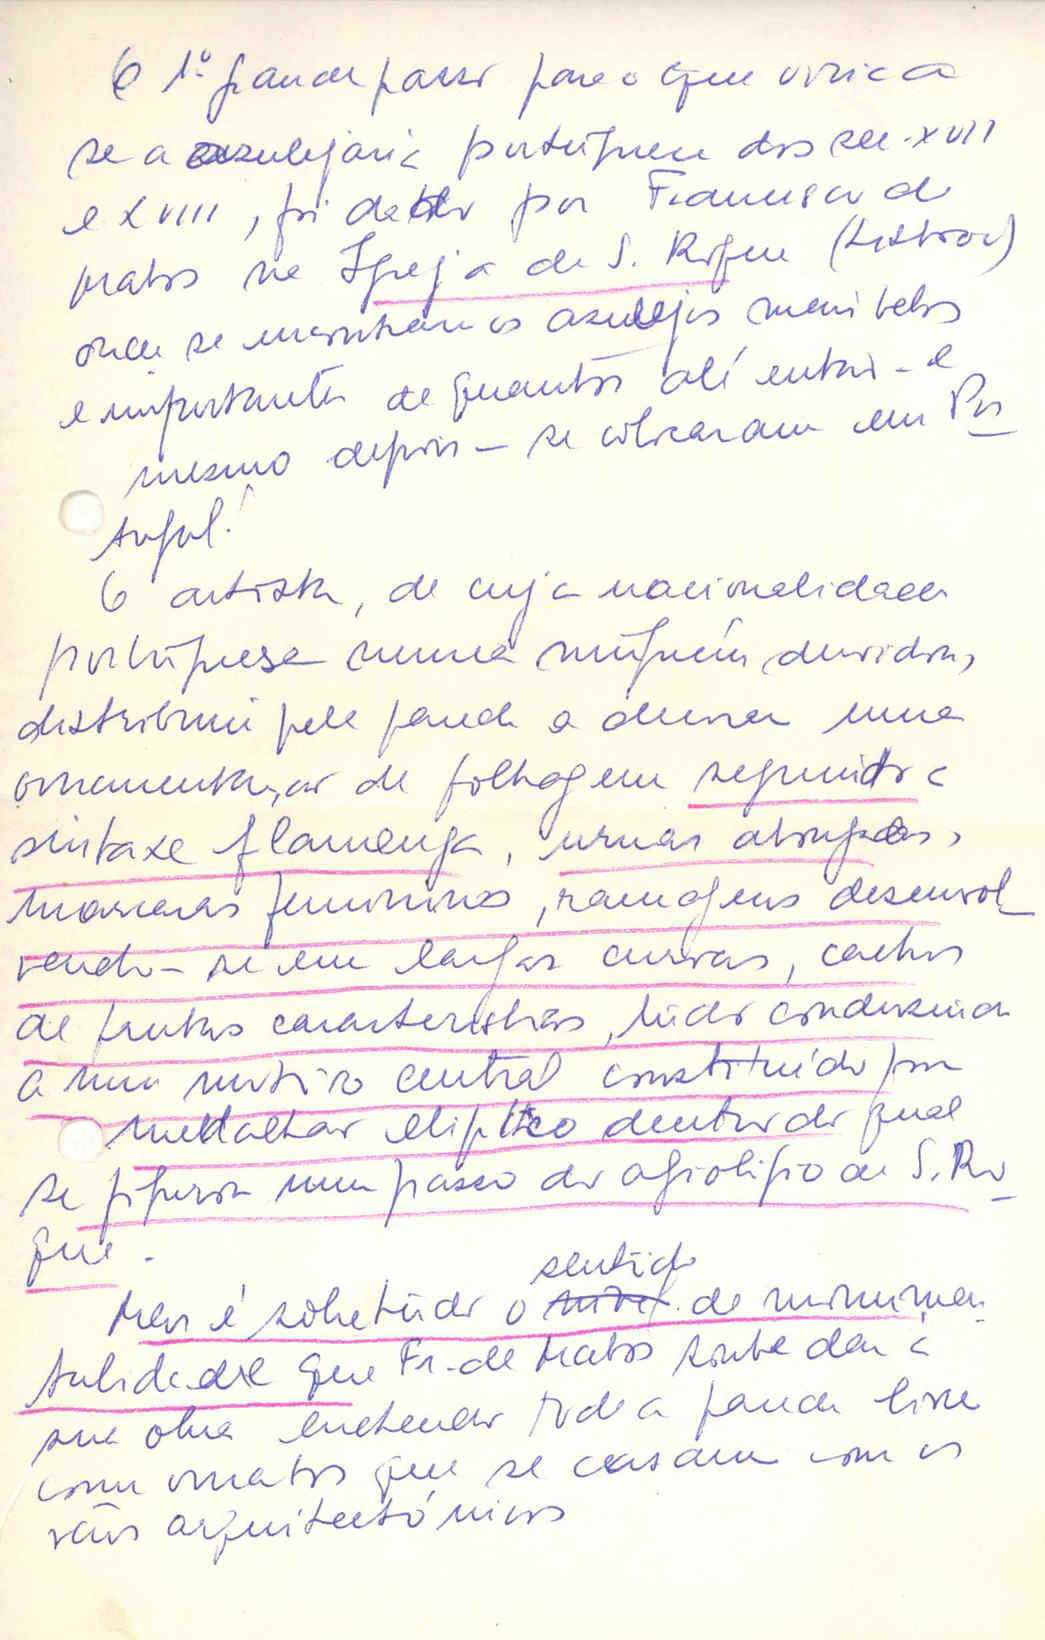 O 1º grande passo para o que viria a
se a azulejaria portuguesa dos sec. XVII
e XVIII, foi dado por Francisco de
Matos na Igreja de S. Roque (Lisboa)
onde se encontram os azulejos mais belos
e importantes de quantos até então - e
mesmo depois - se colocaram em Por
tugal!
O artista, de cuja nacionalidade
portuguesa nunca ninguém duvidou,
distribuiu pela parede a decorar uma
ornamentação de folhagem segundo a
sintaxe flamenga, urnas alongadas,
mascaras femininas, ramagens desenvol
vendo-se em largas curvas, cachos
de frutos caracteristicos, tudo conduzindo
a um motivo central constituído por
medalhão eliptico dentro do qual
se figura um passo do agiologio de S. Ro
que.
Mas é sobretudo o sentido de monumen
talidade que Fr. de Matos soube dar à
sua obra enchendo toda a parede livre
com ornatos que se casam com os
vãos arquitectónicos